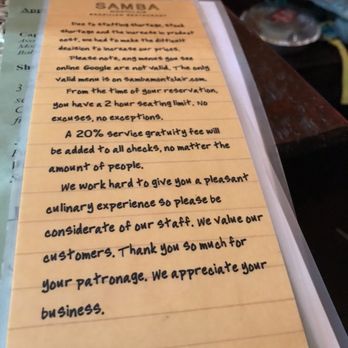 SAMBA
BRAZILIAN RESTAURANT
Due to staffing shortage, stock
shortage and the increase in product
cost, we had to make the difficult
decision to increase our prices.
Please note, any menus you see
online Google are not valid. The only
valid menu is on sambamontclair.com.
From the time of your reservation,
you have a 2 hour seating limit. No
excuses, no exceptions.
A 20% service gratuity fee will
be added to all checks, no matter the
amount of people.
We work hard to give you a pleasant
culinary experience so please be
considerate of our staff. We value our
customers. Thank you so much for
your patronage. We appreciate your
business.